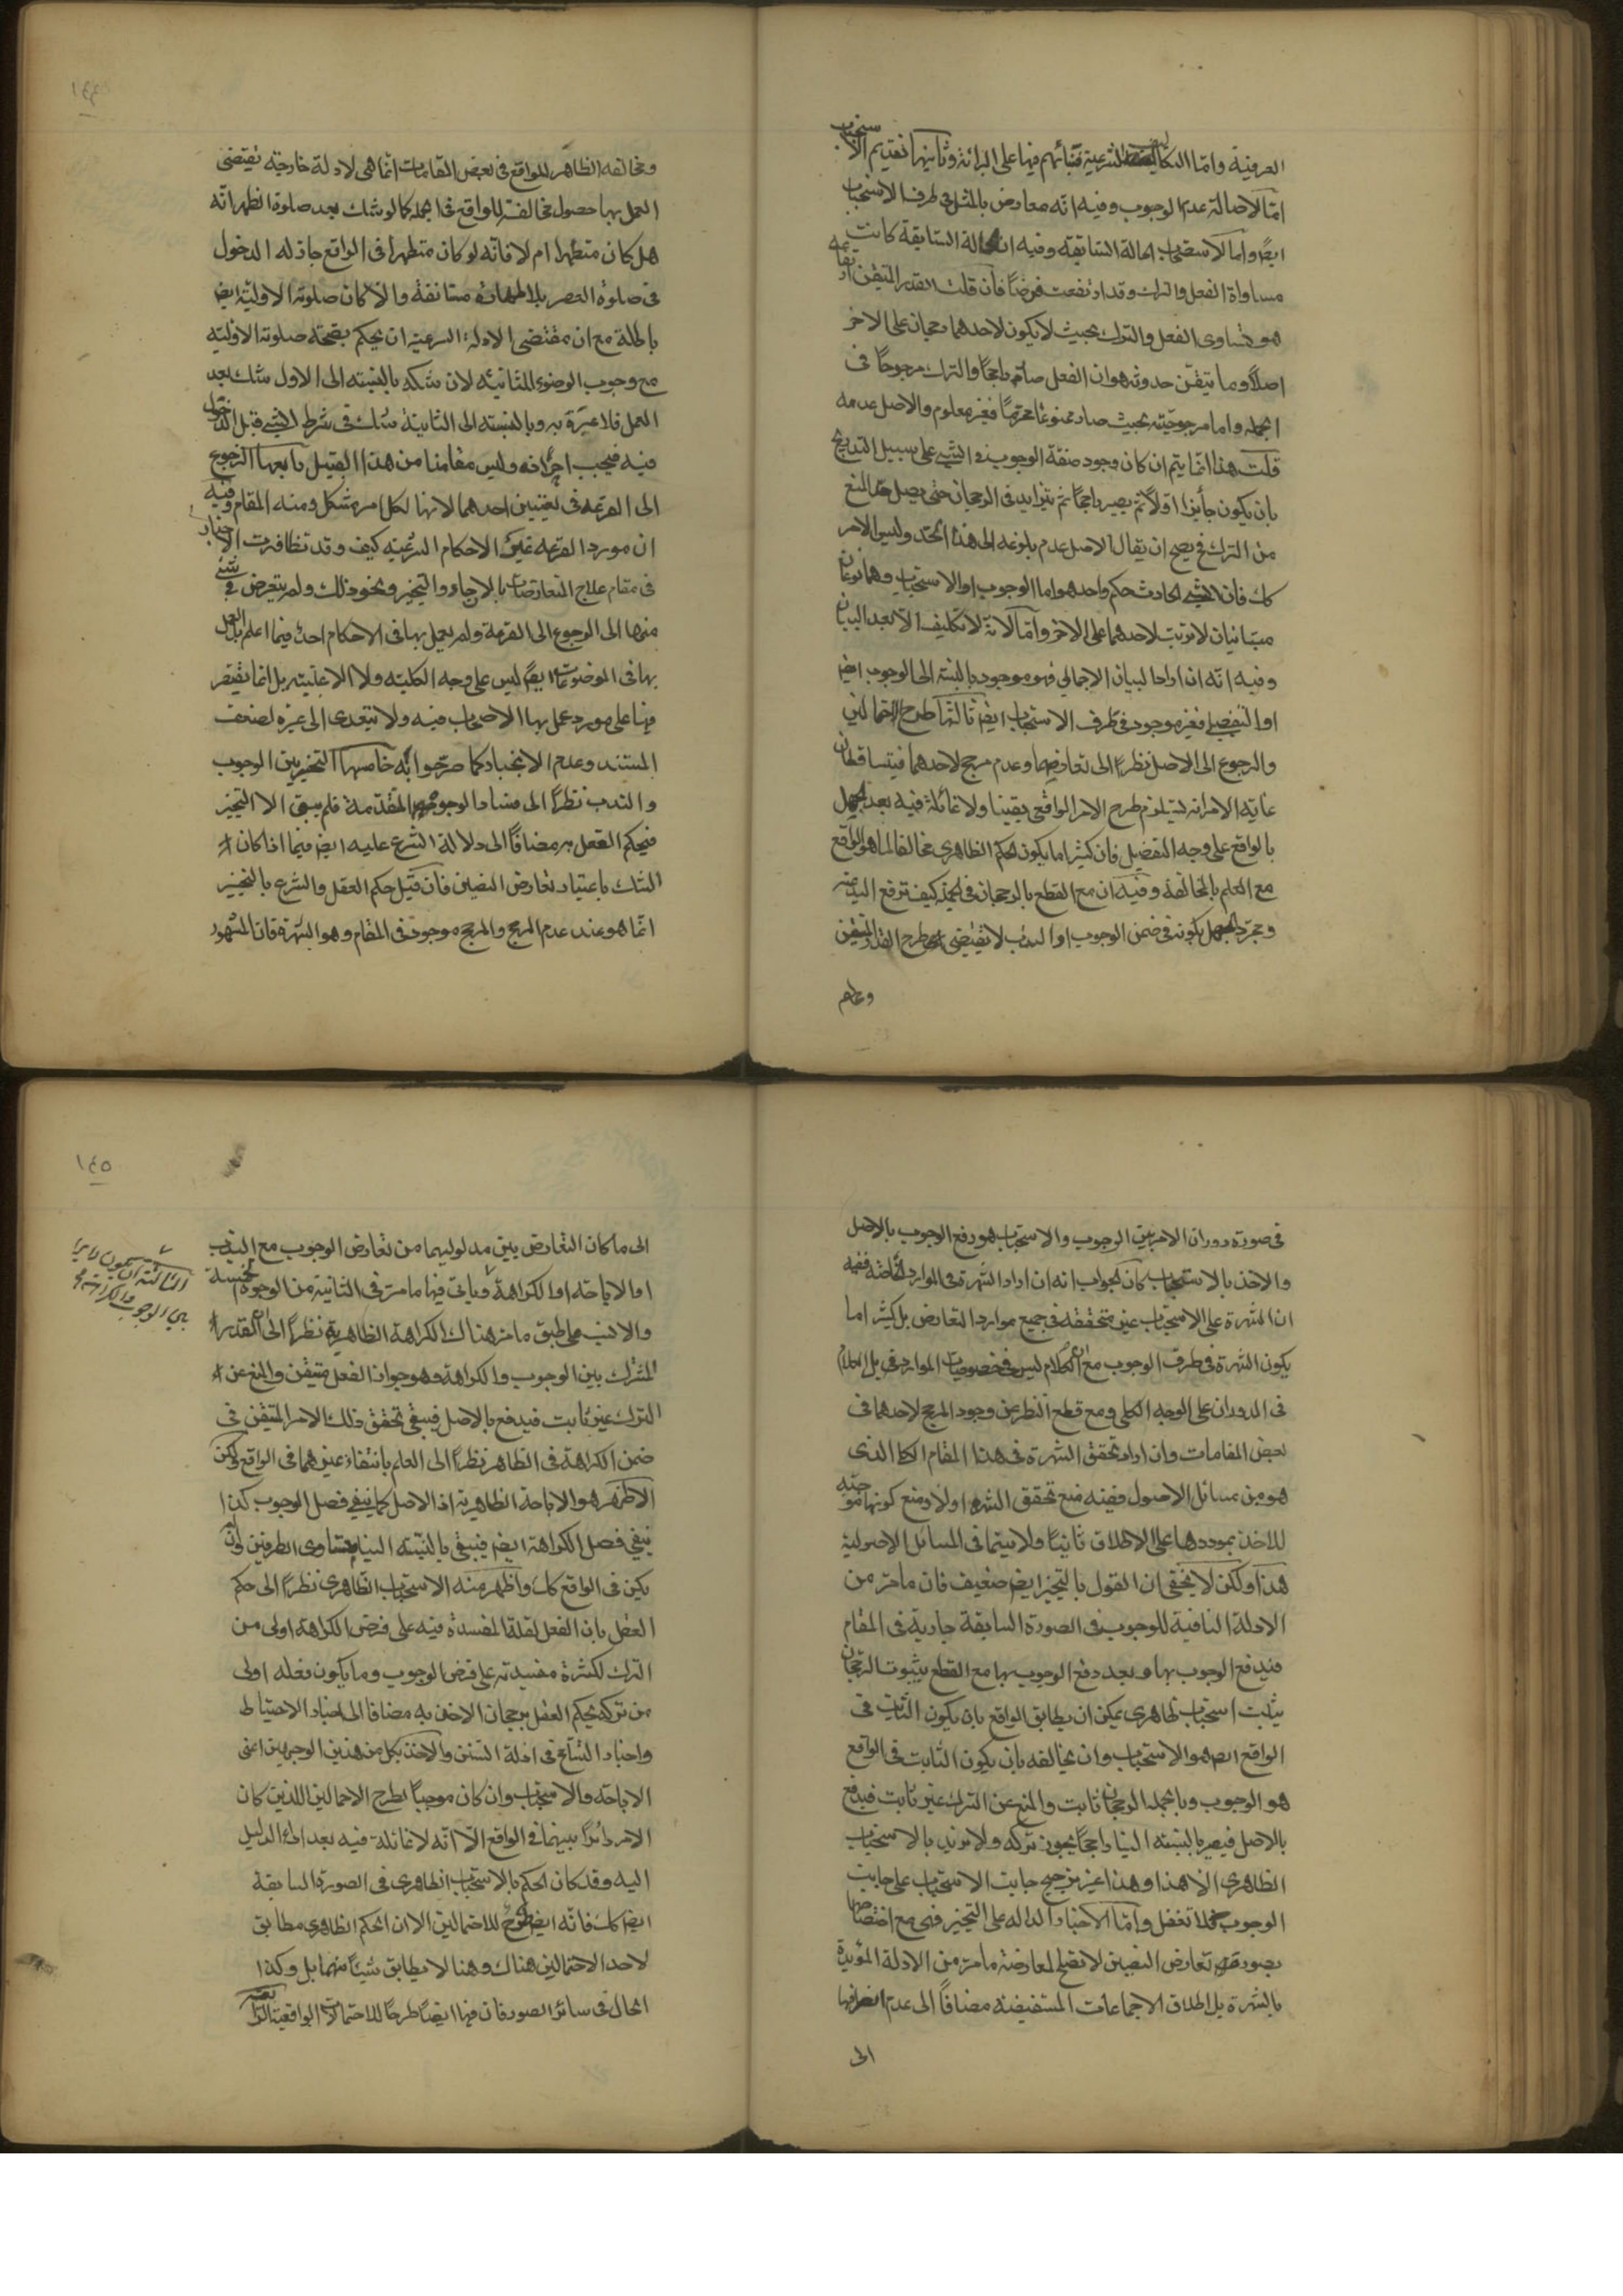 العرفية واما التكاليف الشرعية فبنائهم فيها على البرائة وثانيها تقديم الاستحباب
امّا لاصالة عدم الوجوب وفيه انه معارض بالمثل في طرف الاستحباب
ايضا واما لاستصحاب الحالة السابقة وفيه ان الحالة السابقة كانت
مساواة الفعل والترك وقد ارتفعت فرضاً فان قلت القدر المتيقن ارتفاعه
هو تساوى الفعل والترك بحيث لا يكون لاحدهما رجحان على الاخر
اصلاً وما يتيقّن حدوثه هو ان الفعل صار راجحاً والترك مرجوحاً فى
الجملة واما مرجوحيّته بحيث صار ممنوعا محرّماً فغير معلوم والاصل عدمه
قلت هذا انّما يتم ان كان وجود صفة الوجوب فى الشىء على سبيل التدريج
بان يكون جائزا اوّلاً ثم يصير راجحاً ثم يتزايد فى الرجحان حتى يصل حد المنع
من الترك فح يصح ان يقال الاصل عدم بلوغه الى هذا الحدّ وليس الامر
كك فان الشىء الحادث حكم واحد هو اما الوجوب او الاستحباب وهما نوعان
متباينان لا ترتب لاحدهما على الاخر وامّا لانّه لا تكليف الا بعد البيان
وفيه انّه ان اراد البيان الاجمالي فهو موجود بالنسبة الى الوجوب ايض
او التفصيلى فغير موجود فى طرف الاستحباب ايض ثالثها طرح الاحتمالين
والرجوع الى الاصل نظراً الى تعارضهما وعدم مرجح لاحدهما فيتساقطان
غاية الامر انه يستلزم طرح الامر الواقعى يقينا ولا غائلة فيه بعد الجهل
بالواقع على وجه التفصيل فان كثيرا ما يكون الحكم الظاهرى مخالفا لما هو الواقع
مع العلم بالمخالفة وفيه ان مع القطع بالرجحان فى الجملة كيف ترفع اليد عنه
ومجرّد الجهل بكونه فى ضمن الوجوب او الندب لا يقتضى طرح القدر المتيقن
ومخالفة الظاهر للواقع فى بعض المقامات انّما هى لادلة خارجة تقتضى
العمل بها حصول مخالفة للواقع فى الجملة كما لو شك بعد صلوة الظهر انّه
هل كان متطهرا ام لا فانّه لو كان متطهرا فى الواقع جاز له الدخول
فى صلوة العصر بلا طهارة مستانفة والا كان صلوته الاوليّة ايض
باطلة مع ان مقتضى الادلة الشرعية ان يحكم بصحة صلوته الاوليّة
مع وجوب الوضوء للثانية لان شكه بالنسبة الى الاول شك بعد
العمل فلا عبرة به وبالنسبة الى الثانية شك فى شرط الشىء قبل الدخول
فيه فيجب احرازه وليس مقامنا من هذا القبيل رابعها الرجوع
الى القرعة فى تعيين احدهما لانها لكل امر مشكل ومنه المقام وفيه
ان مورد القرعة غير الاحكام الشرعية كيف وقد تظافرت الاخبار
فى مقام علاج المتعارضات بالارجاء والتخيير ونحو ذلك ولم يتعرض فى شئ
منها الى الرجوع الى القرعة ولم يعمل بها فى الاحكام احد فيما اعلم بل العمل
بها فى الموضوعات ايضً ليس على وجه الكلية ولا الاغلبيّة بل انما يقتصر
فيها على مورد عمل بها الاصحاب فيه ولا يتعدى الى غيره لضعف
المستند وعدم الانجبار كما صرّحوا به خامسها التخيير بين الوجوب
والندب نظراً الى فساد الوجوه المتقدّمة فلم يبق الا التخيير
فيحكم العقل به مضافاً الى دلالة الشرع عليه ايض فيما اذا كان
الشك باعتبار تعارض النصين فان قيل حكم العقل والشرع بالتخيير
انّما هو عند عدم المرجح والمرجح موجود فى المقام وهو الشهرة فان المشهور
فى صورة دوران الامر بين الوجوب والاستحباب هو رفع الوجوب بالاصل
والاخذ بالاستحباب كان الجواب انه ان اراد الشهرة فى الموارد الخاصّة ففيه
ان الشهرة على الاستحباب غير متحققة فى جميع موارد التعارض بل كثيرا ما
يكون الشهرة فى طرف الوجوب مع ان الكلام ليس فى خصوصيات الموارد بل الكلام
فى الدوران على الوجه الكلى ومع قطع النظر عن وجود المرجح لاحدهما فى
بعض المقامات وان اراد تحقق الشهرة فى هذا المقام الكلى الذى
هو من مسائل الاصول ففيه منع تحقق الشهرة اولا ومنع كونها موجبة
للاخذ بموردها على الاطلاق ثانيًا ولا سيّما فى المسائل الاصولية
هذا ولكن لا يخفى ان القول بالتخيير ايض ضعيف فان ما مرّ من
الادلة النافية للوجوب فى الصورة السابقة جارية فى المقام
فيدفع الوجوب بها وبعد دفع الوجوب بها مع القطع بثبوت الرجحان
يثبت استحباب ظاهرى يمكن ان يطابق الواقع بان يكون الثابت فى
الواقع ايض هو الاستحباب وان يخالفه بان يكون الثابت فى الواقع
هو الوجوب وبالجملة الرجحان ثابت والمنع عن الترك غير ثابت فيدفع
بالاصل فيصير بالنسبة الينا راجحاً يجوز تركه ولا نريد بالاستحباب
الظاهرى الا هذا وهذا غير ترجيح جانب الاستحباب على جانب
الوجوب فلا تغفل وامّا الاخبار الدالة على التخيير فهى مع اختصاصها
بصورة تعارض النصين لا تصلح لمعارضة ما مرّ من الادلة المؤيدة
بالشهرة بل اطلاق الاجماعات المستفيضة مضافاً الى عدم انصرافها
الى
١٤٥
الى ما كان التعارض بين مدلوليهما من تعارض الوجوب مع الندب
او الاباحة او الكراهة وياتى فيها ما مرّ فى الثانية من الوجوه الخمسة
والانسب على طبق ما مرّ هناك الكراهة الظاهرية نظراً الى ان القدر
المشترك بين الوجوب والكراهة وهو جواز الفعل متيقن والمنع عن
الترك غير ثابت فيدفع بالاصل فيبقى تحقق ذلك الامر المتيقن فى
ضمن الكراهة فى الظاهر نظراً الى العلم بانتفاء غيرهما فى الواقع ولكن
الاظهر هو الاباحة الظاهرية اذ الاصل كما ينفى فصل الوجوب كذا
ينفى فصل الكراهة ايض فيبقى بالنسبة الينا متساوى الطرفين وان لم
يكن فى الواقع كك واظهر منه الاستحباب الظاهرى نظراً الى حكم
العقل بان الفعل لقلة المفسدة فيه على فرض الكراهة اولى من
الترك لكثرة مفسدته على فرض الوجوب وما يكون فعله اولى
من تركه يحكم العقل برجحان الاخذ به مضافا الى اخبار الاحتياط
واخبار التسامح فى ادلة السنن والاخذ بكل من هذين الوجهين اعنى
الاباحة والاستحباب وان كان موجباً لطرح الاحتمالين اللذين كان
الامر دائرًا بينهما فى الواقع الّا انّه لا غائلة فيه بعد اداء الدليل
اليه وقد كان الحكم بالاستحباب الظاهرى فى الصورة السابقة
ايض كك فانّه ايض طرح للاحتمالين الا ان الحكم الظاهرى مطابق
لاحد الاحتمالين هناك وهنا لا يطابق شيئاً منهما بل وكذا
الحال فى سائر الصور فان فيها ايضاً طرحًا للاحتمالات الواقعية